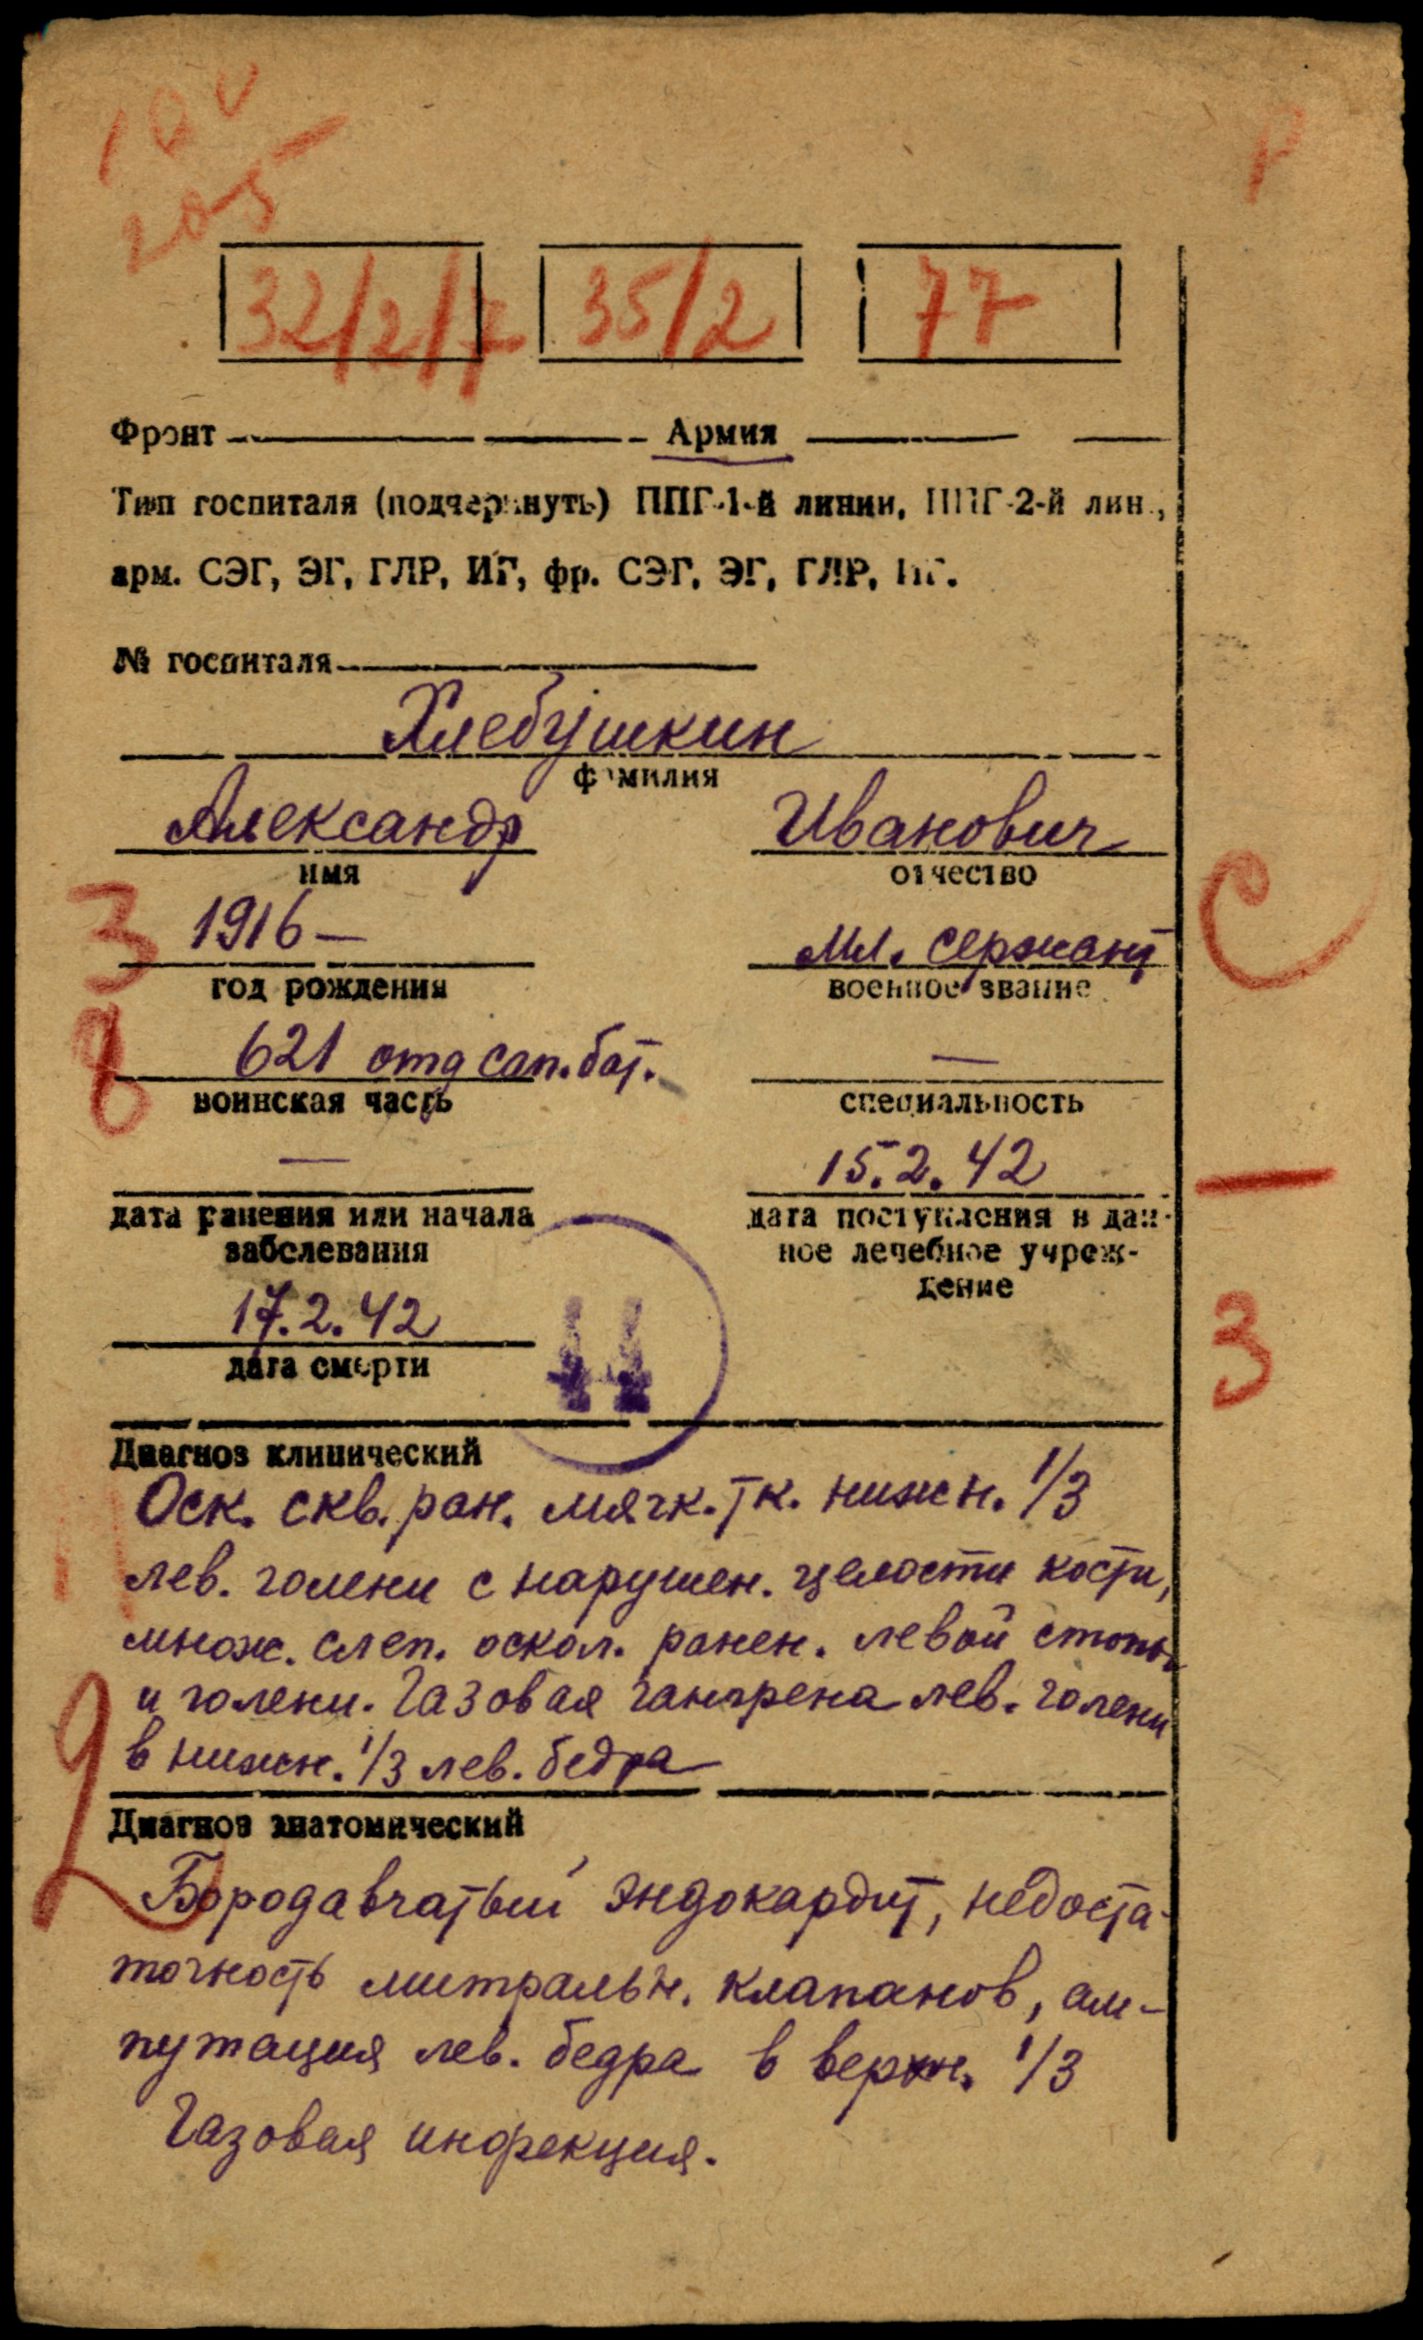 100
205
32/2/7 35/2 77
Фронт Армия
Тип госпиталя (подчеркнуть) ППГ-1-й линии, ППГ-2-й лин.,
арм. СЭГ, ЭГ, ГЛР, ИГ, фр. СЭГ, ЭГ, ГЛР, ИГ.
№ госпиталя
Хлебушкин
фамилия
Александр Иванович
имя отчество
З С
1916 — мл. сержант
год рождения военное звание
8
621 отд сап. бат. —
воинская часть специальность
— 15.2.42
дата ранения или начала дата поступления в дан-
заболевания ное лечебное учреж-
дение
17.2.42
дата смерти
3
Диагноз клинический
Оск. скв. ран. мягк. тк. нижн. 1/3
лев. голени с нарушен. целости кости,
множ. слеп. оскол. ранен. левой стопы
и голени. Газовая гангрена лев. голени
в нижн. 1/3 лев. бедра
Диагноз анатомический
Бородавчатый эндокардит, недоста-
точность митральн. клапанов, ам-
путация лев. бедра в верхн. 1/3
Газовая инфекция.